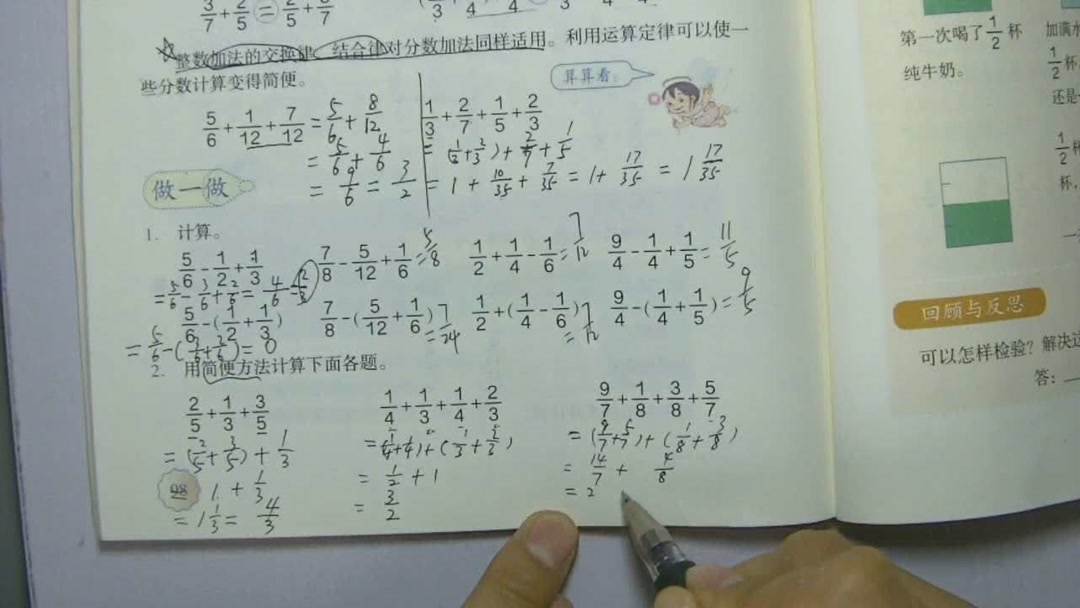 3/7 + 2/5 = 2/5 + 3/7
整数加法的交换律、结合律对分数加法同样适用。利用运算定律可以使一
些分数计算变得简便。
算算看。
5/6 + 1/12 + 7/12 = 5/6 + 8/12
= 5/6 + 4/6
= 9/6 = 3/2
1/3 + 2/7 + 1/5 + 2/3
= (1/3 + 2/3) + 2/7 + 1/5
= 1 + 10/35 + 7/35 = 1 + 17/35 = 1 17/35
做一做
1. 计算。
5/6 - 1/2 + 1/3
= 5/6 - 3/6 + 2/6 = 4/6 = 2/3
7/8 - 5/12 + 1/6 = 5/8
1/2 + 1/4 - 1/6 = 7/12
9/4 - 1/4 + 1/5 = 11/5
5/6 - (1/2 + 1/3)
= 5/6 - (3/6 + 2/6) = 0
7/8 - (5/12 + 1/6) = 7/24
1/2 + (1/4 - 1/6) = 7/12
9/4 - (1/4 + 1/5) = 9/5
2. 用简便方法计算下面各题。
2/5 + 1/3 + 3/5
= (2/5 + 3/5) + 1/3
= 1 + 1/3
= 1 1/3 = 4/3
1/4 + 1/3 + 1/4 + 2/3
= (1/4 + 1/4) + (1/3 + 2/3)
= 1/2 + 1
= 3/2
9/7 + 1/8 + 3/8 + 5/7
= (9/7 + 5/7) + (1/8 + 3/8)
= 14/7 + 4/8
= 2
98
第一次喝了1/2杯
纯牛奶。
加满水
1/2杯
还是
1/2杯
杯，
回顾与反思
可以怎样检验？解决这
答：